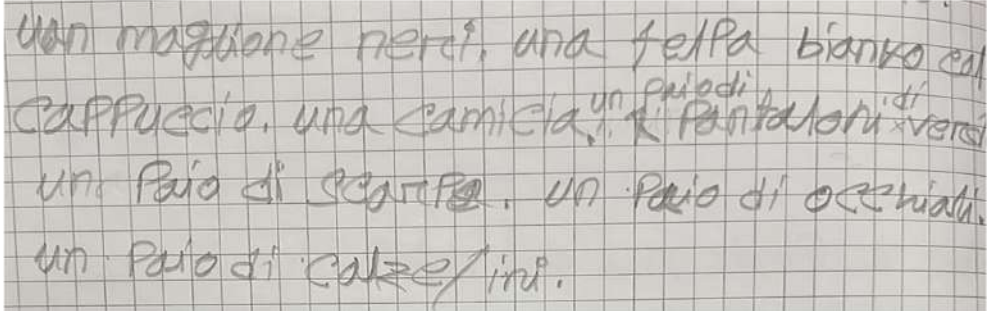 uan maglione nerci, una felpa bianco col
cappuccio. una camicia, un paio di pantaloni di versi
un paio di scarpe. un paio di occhiali.
un paio di calzetini.